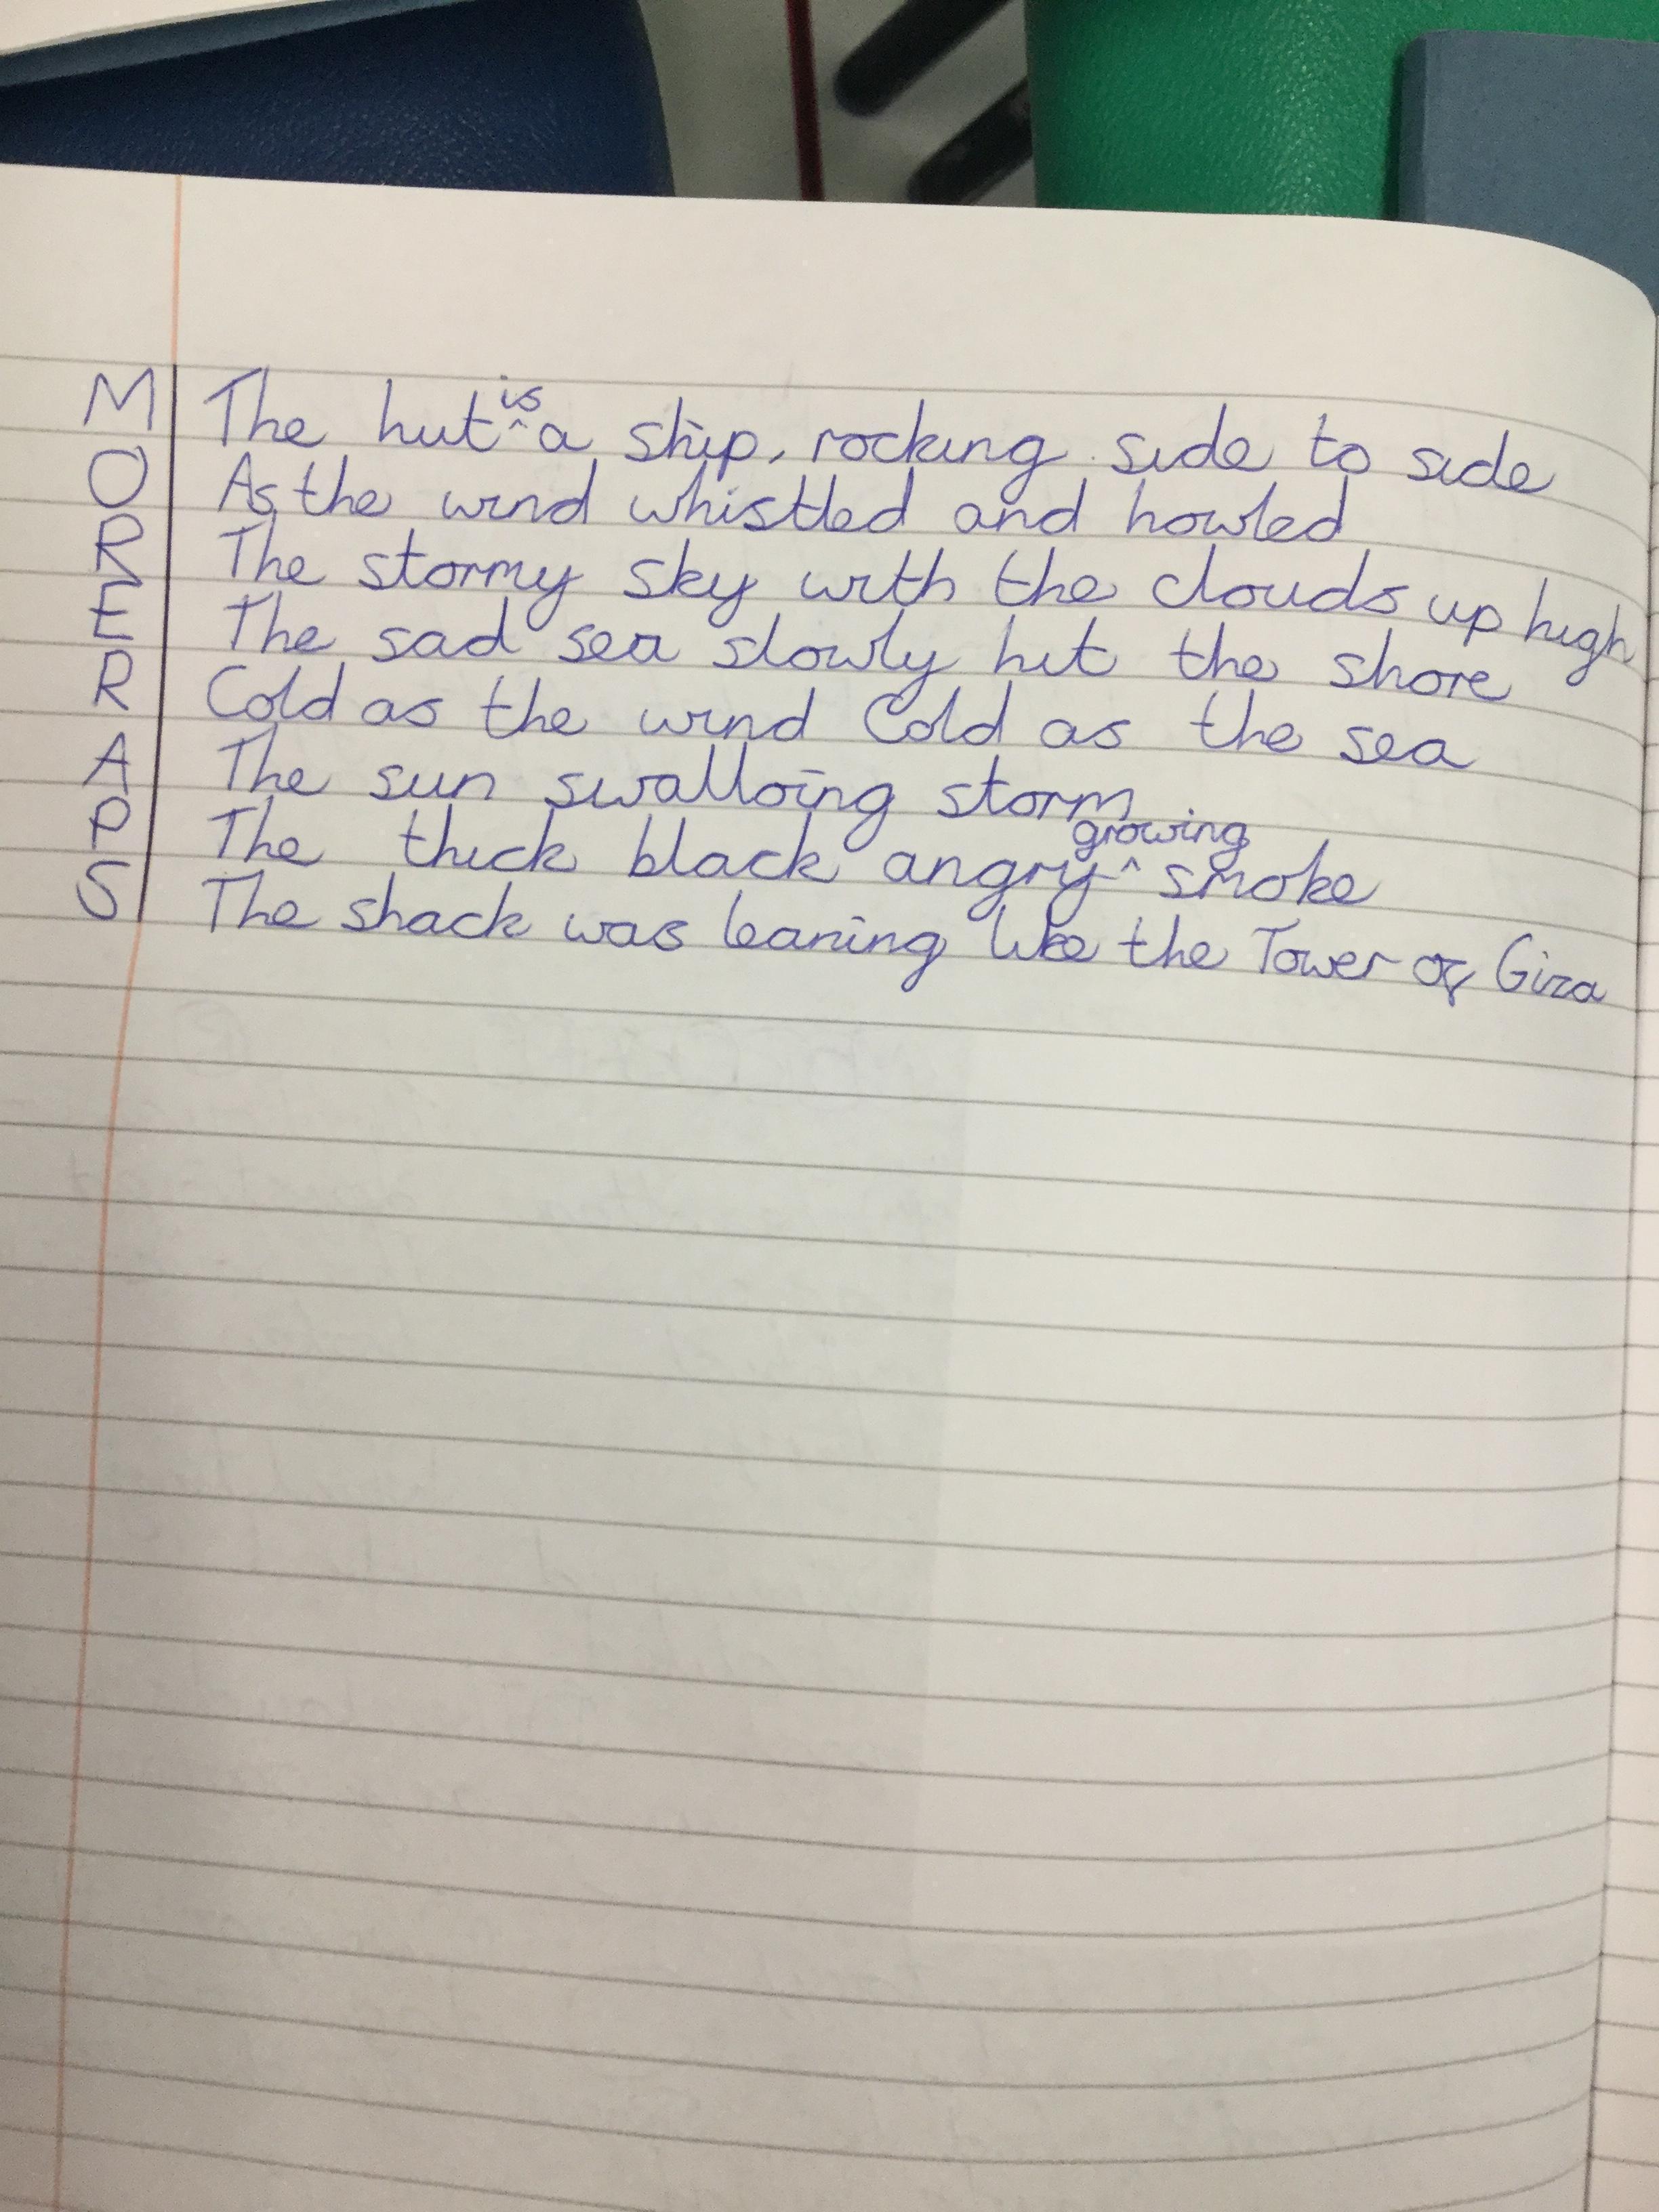 M The hut is a ship, rocking side to side
O As the wind whistled and howled
R The stormy sky with the clouds up high
E The sad sea slowly hit the shore
R Cold as the wind Cold as the sea
A The sun swalloing storm
P The thick black angry growing smoke
S The shack was leaning like the Tower of Giza